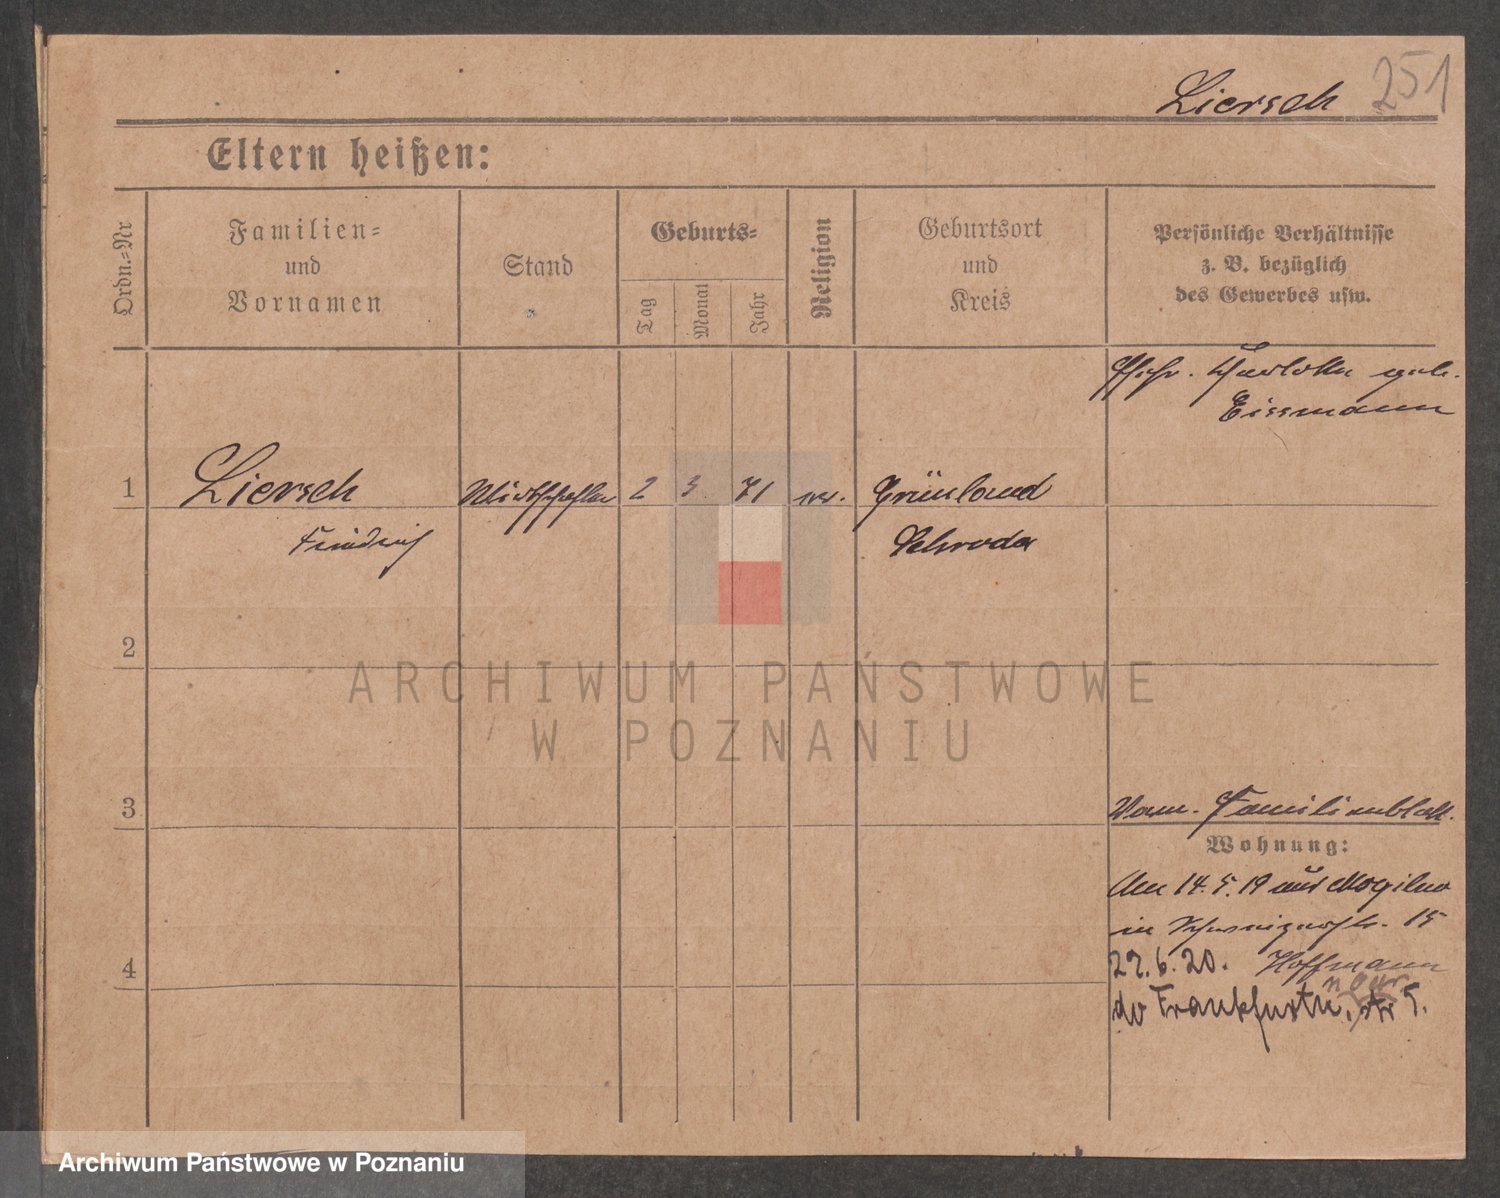 Liersch 251
Eltern heißen:
Ordn.-Nr
Familien-
und
Vornamen
Stand
Geburts-
Tag
Monat
Jahr
Religion
Geburtsort
und
Kreis
Persönliche Verhältnisse
z. B. bezüglich
des Gewerbes usw.
geb.
Eissmann
1 Liersch 2 3 71 ev. Grünland
Friedrich Schroda
2
3
Familienblatt.
Wohnung:
Am 14.5.19 aus Mogilno
in 15
4
27.6.20. Hoffmann
Frankfurtn. 5.
ARCHIWUM PAŃSTWOWE
W POZNANIU
Archiwum Państwowe w Poznaniu